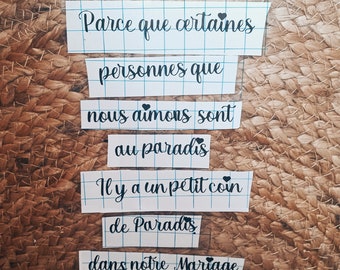 Parce que certaines
personnes que
nous aimons sont
au paradis
Il y a un petit coin
de Paradis
dans notre Mariage